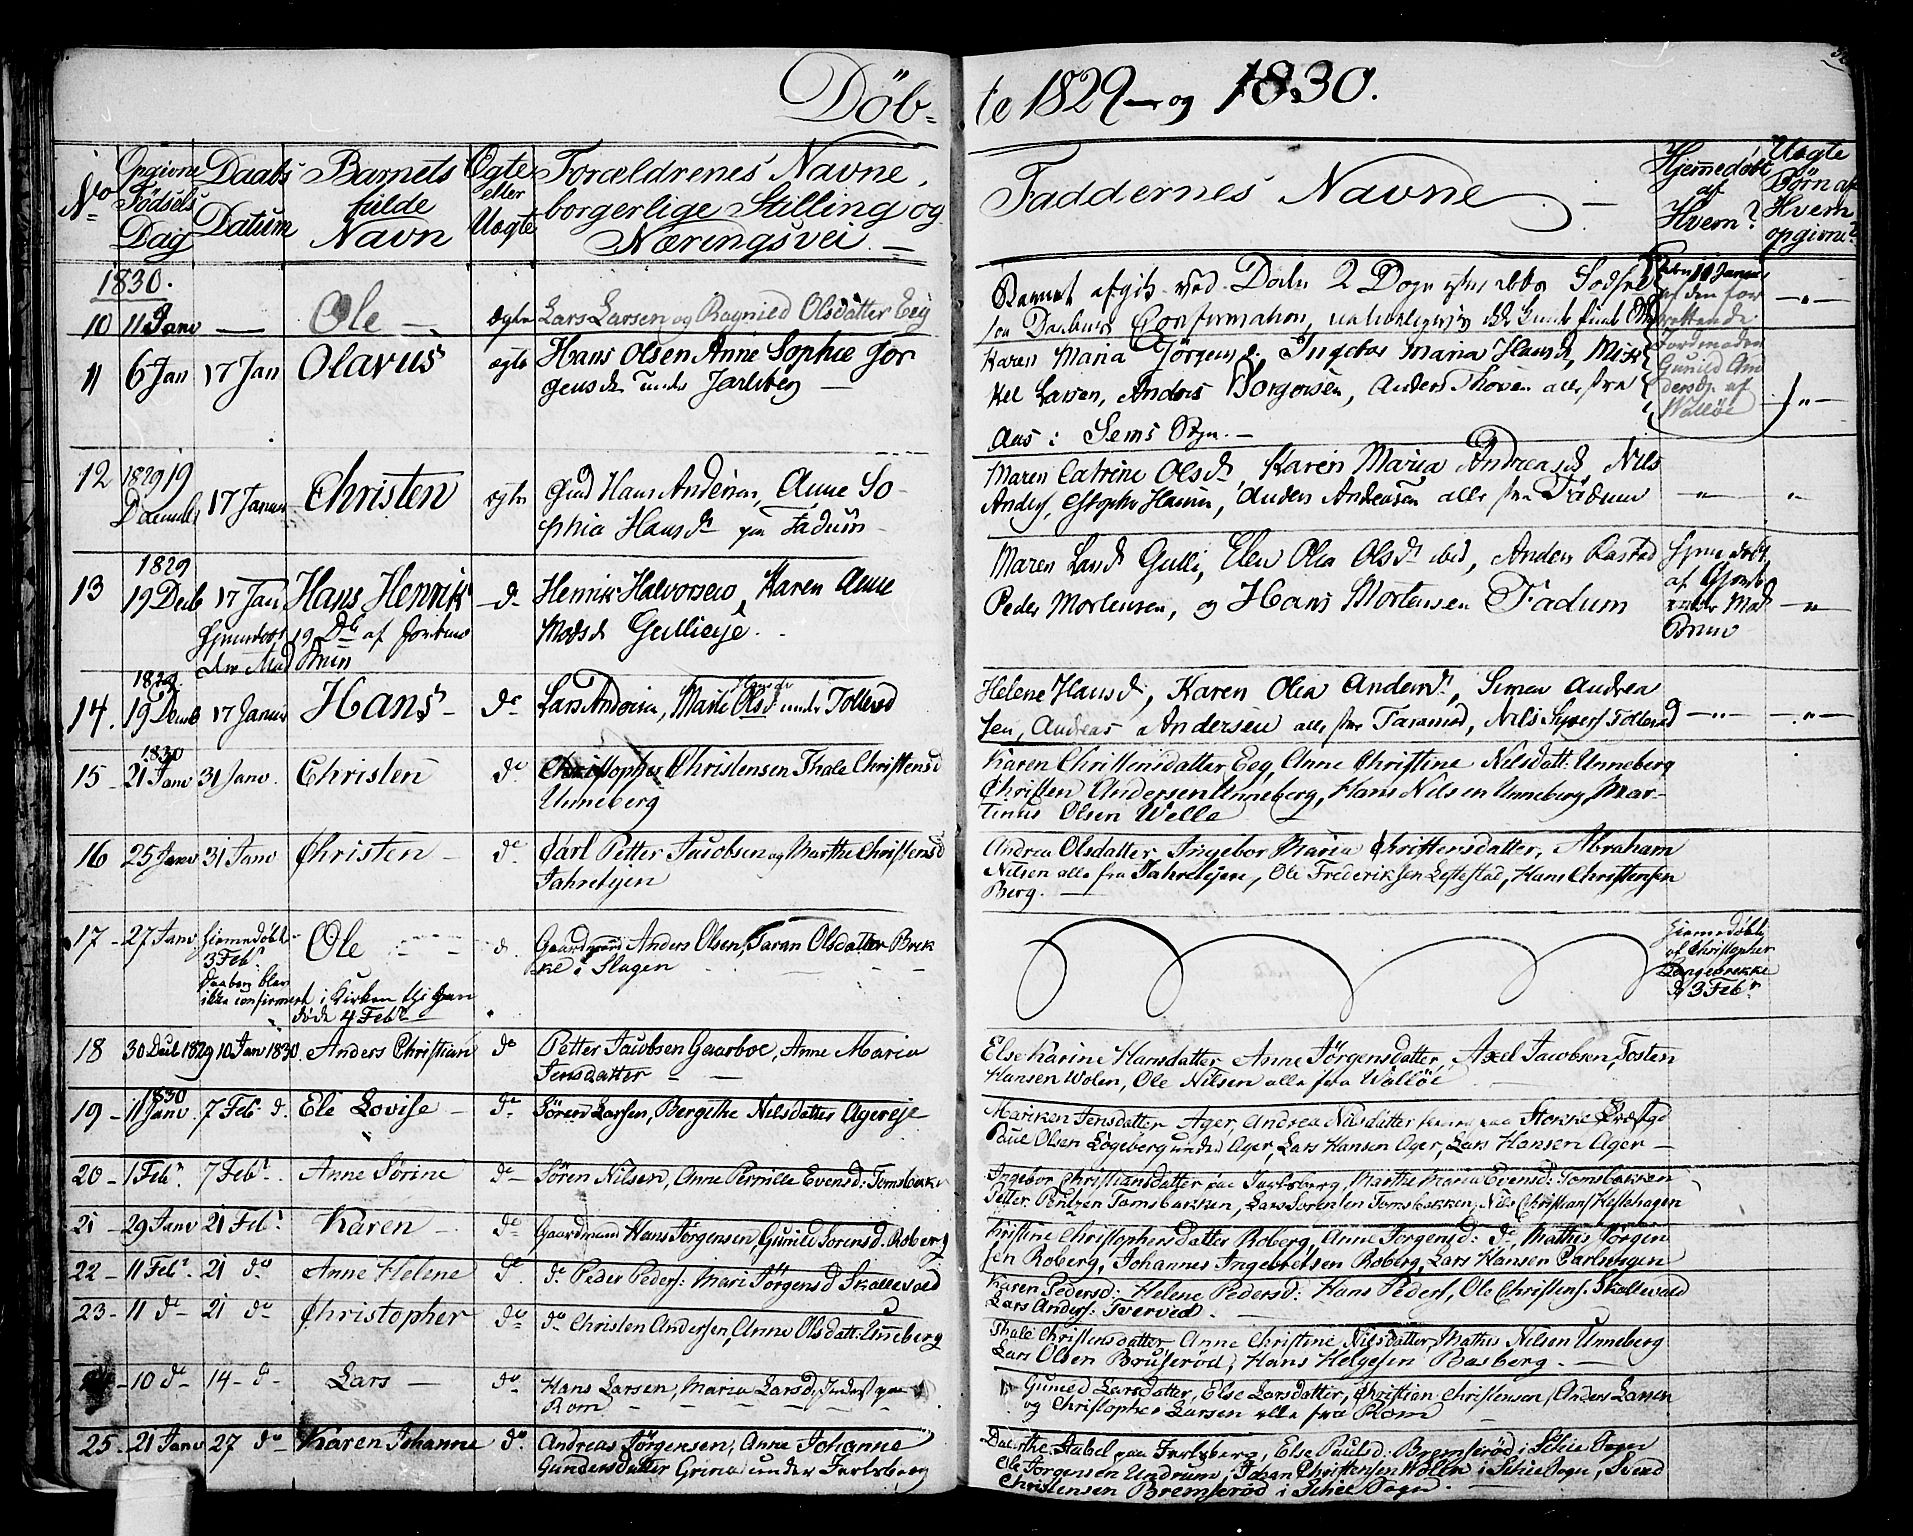 Döb-
te 1829 og 1830.
No
Opgivne Fødsels Dag
Daabs Datum
Barnets fulde Navn
Ægte eller Uægte
Forældrenes Navne,
borgerlige Stilling og
Næringsvei. –
Faddernes Navne. –
Hjemedøbt af Hvem?
Uægte Børn af Hvem opgivne?
1830.
10 11 Janv — Ole — ægte Lars Larsen og Ragnild Olsdatter Eeg
Barnet afgik ved Døden 2 Dage efter
Confirmation
af den for
Jordmoder
Gunild An
dersd. af
Walløe
11 6 Jan 17 Jan Olavus ægte Hans Olsen Anne Sophie Jör
gensd. under Jarlsberg —
Karen Maria Jörgensd. Ingebor Maria Hansd, Mik
kel Larsen, Andres Borgersen, Anders Thoren alle fra
Aas i Sems Sogn. —
12 1829 19 Decembr 17 Januar Christen ægte Hans Andersen, Anne So-
phia Hansdr paa Fadum
Maren Catrine Olsd, Karen Maria Andreasd, Nils
Anders, Hansen, Anders Andersen alle fra Fadum
13 1829 19 Decb 17 Jan Hans Henrik — do Henrik Halvorsen, Karen Anne
Madsd Gullieje.
Maren Larsd Gulli, Elen Olea Olsdr ibid, Anders Rastad
Peder Mortensen, og Hans Mortensen Fadum
af Jordemoder Mad Bruun
14. 1829 19 Decmb 17 Januar Hans — do Lars Andersen, Marte Olsd under Tollerød
Helene Hansd, Karen Olea Andersd, Simen Andrea
sen, Andreas Andersen alle fra Taranrød, Nils Syvers Tollerød
15 1830 21 Janv 31 Janv. Christen do Christopher Christensen Thale Christensd
Unneberg
Karen Christensdatter Eeg, Anne Christine Nilsdatt: Unneberg
Christen Andersen Unneberg, Hans Nilsen Unneberg, Mar-
tinus Olsen Welle
16 25 Janv 31 Janv Christen — do Carl Petter Jacobsen og Marthe Christensd
Jahrelyen
Andrea Olsdatter, Ingebor Maria Christensdatter, Abraham
Nilsen alle fra Jahrelyen, Ole Frederiksen Leftestad, Hans Christensen
Berg. —
17 – 27 Janv Hjemedøbt 3 Febr. Ole — — d. Gaardmand Anders Olsen, Taran Olsdatter Brek
ke i Slagen
Daaben blev
ikke confirmert i Kirken thi han
døde 4 Febr
Hjemedøbt
af Christopher
Langebrekke
d 3 Febr.
18 30 Decb 1829 10 Janv 1830. Anders Christian do Petter Jacobsen Gaarboe, Anne Maria
Jensdatter — —
Else Karine Hansdatter, Anne Jörgensdatter, Axel Jacobsen, Tosten
Hansen Wolen, Ole Nilsen alle fra Walløe
19 – 1830 11 Janv. 7 Feb. d. Ele Lovise – do Sören Larsen, Bergithe Nilsdatter Agereje
Mariken Jensdatter Ager, Andrea Nilsdatter paa Stokke Præstgd
Paul Olsen Løgeberg under Ager, Lars Hansen Ager, Lars Hansen Ager —
20 – 1 Febr. 7 Febr. Anne Sörine do Sören Nilsen, Anne Pernille Evensd: Tomsbakke
Ingebor Christiansdatter paa Jarlsberg, Marthe Maria Evensd: Tomsbakken
Petter Bentzen Tomsbakken, Lars Sorensen Tomsbakken, Nils Christians Hestehagen
21 – 29 Janv 21 Febr Karen – do Gaardmand Hans Jörgensen, Gunild Sorensd. Roberg
Kirstine Christophersdatter Roberg, Anne Jorgensd: do, Mathis Jorgen
sen Roberg, Johannes Ingebretsen Roberg, Lars Hansen Carlsengen
22 – 11 Febr. 21 do Anne Helene do. do Peder Peders: Mari Jörgensd Skallevold
Karen Pedersd: Helene Pedersd: Hans Peders, Ole Christens. Skallevold
Lars Anders: Tverved
23 – 11 do 21 do Christopher do do Christen Andersen, Anne Olsdatt: Unneberg
Thale Christensdatter, Anne Christine Nilsdatter, Mathis Nilsen Unneberg
Lars Olsen Bruserød, Hans Helgesen Basberg. —
– 10 do 14 – d – Lars — do Hans Larsen, Maria Larsd, Inderst paa
Rom — — —
Gunild Larsdatter, Else Larsdatter, Christian Christensen, Anders Larsen
og Christopher Larsen alle fra Rom
25 – 21 Janv 27 do Karen Johanne do. Andreas Jörgensen, Anne Johanne
Gundersdatter Grina under Jarlsberg
Dorthe Stabel paa Jarlsberg, Else Paulsd: Bremserød i Schee Sogn
Ole Jorgensen Undrum, Johan Christensen Wollen i Schee Sogn, Svend
Christensen Bremserød i Schee Sogn. —